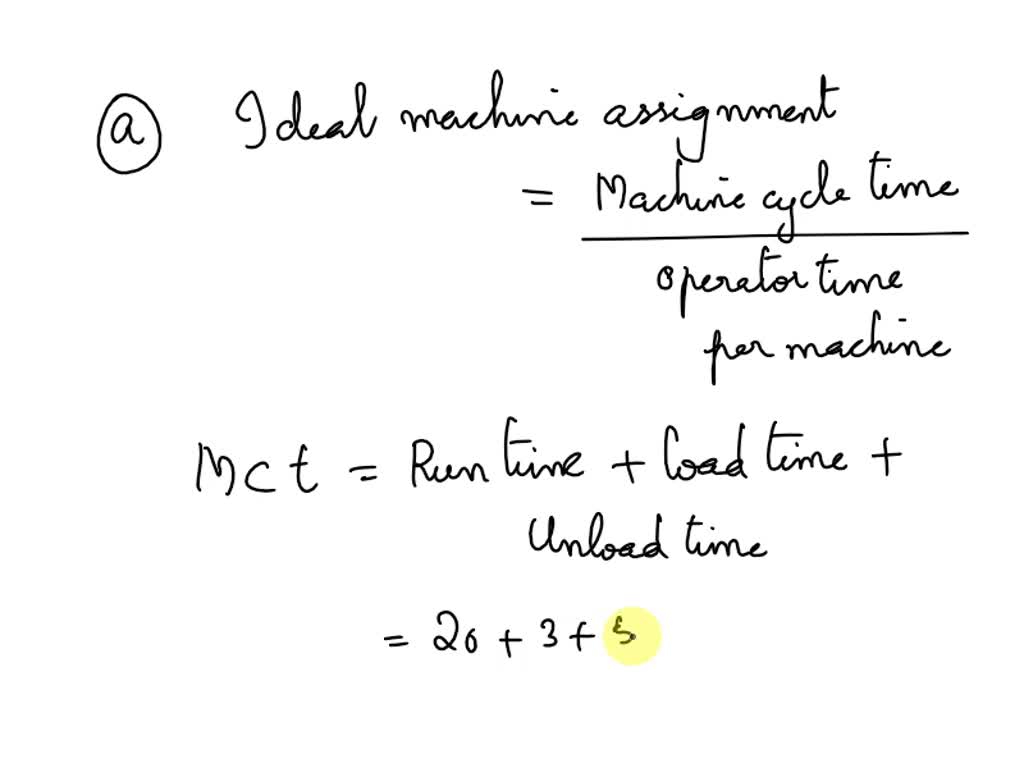 a Ideal machine assignment
= Machine cycle time
operator time
per machine
Mct = Run time + load time +
Unload time
= 20 + 3 + 5